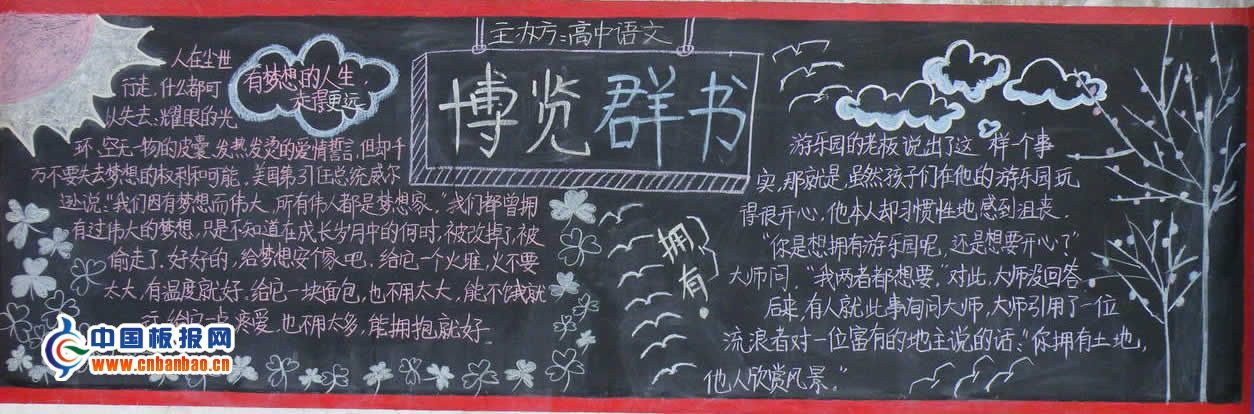 主办方:高中语文
博览群书
有梦想的人生
走得更远
人在尘世
行走,什么都可
以失去:耀眼的光
环、空无一物的皮囊、发热发烫的爱情誓言,但却千
万不要失去梦想的权利和可能。美国第31任总统威尔
逊说:“我们因有梦想而伟大,所有伟人都是梦想家。”我们都曾拥
有过伟大的梦想,只是不知道在成长岁月中的何时,被改掉了,被
偷走了.好好的,给梦想安个家吧。给它一个火堆,火不要
太大,有温度就好.给它一块面包,也不用太大,能不饿就
给它一点疼爱.也不用太多,能拥抱就好.
拥有!
游乐园的老板说出了这样一个事
实,那就是,虽然孩子们在他的游乐园玩
得很开心,他本人却习惯性地感到沮丧.
“你是想拥有游乐园呢,还是想要开心?”
大师问.“我两者都想要,”对此,大师没回答.
后来,有人就此事询问大师,大师引用了一位
流浪者对一位富有的地主说的话:“你拥有土地,
他人欣赏风景.”
中国板报网
www.cnbanbao.cn